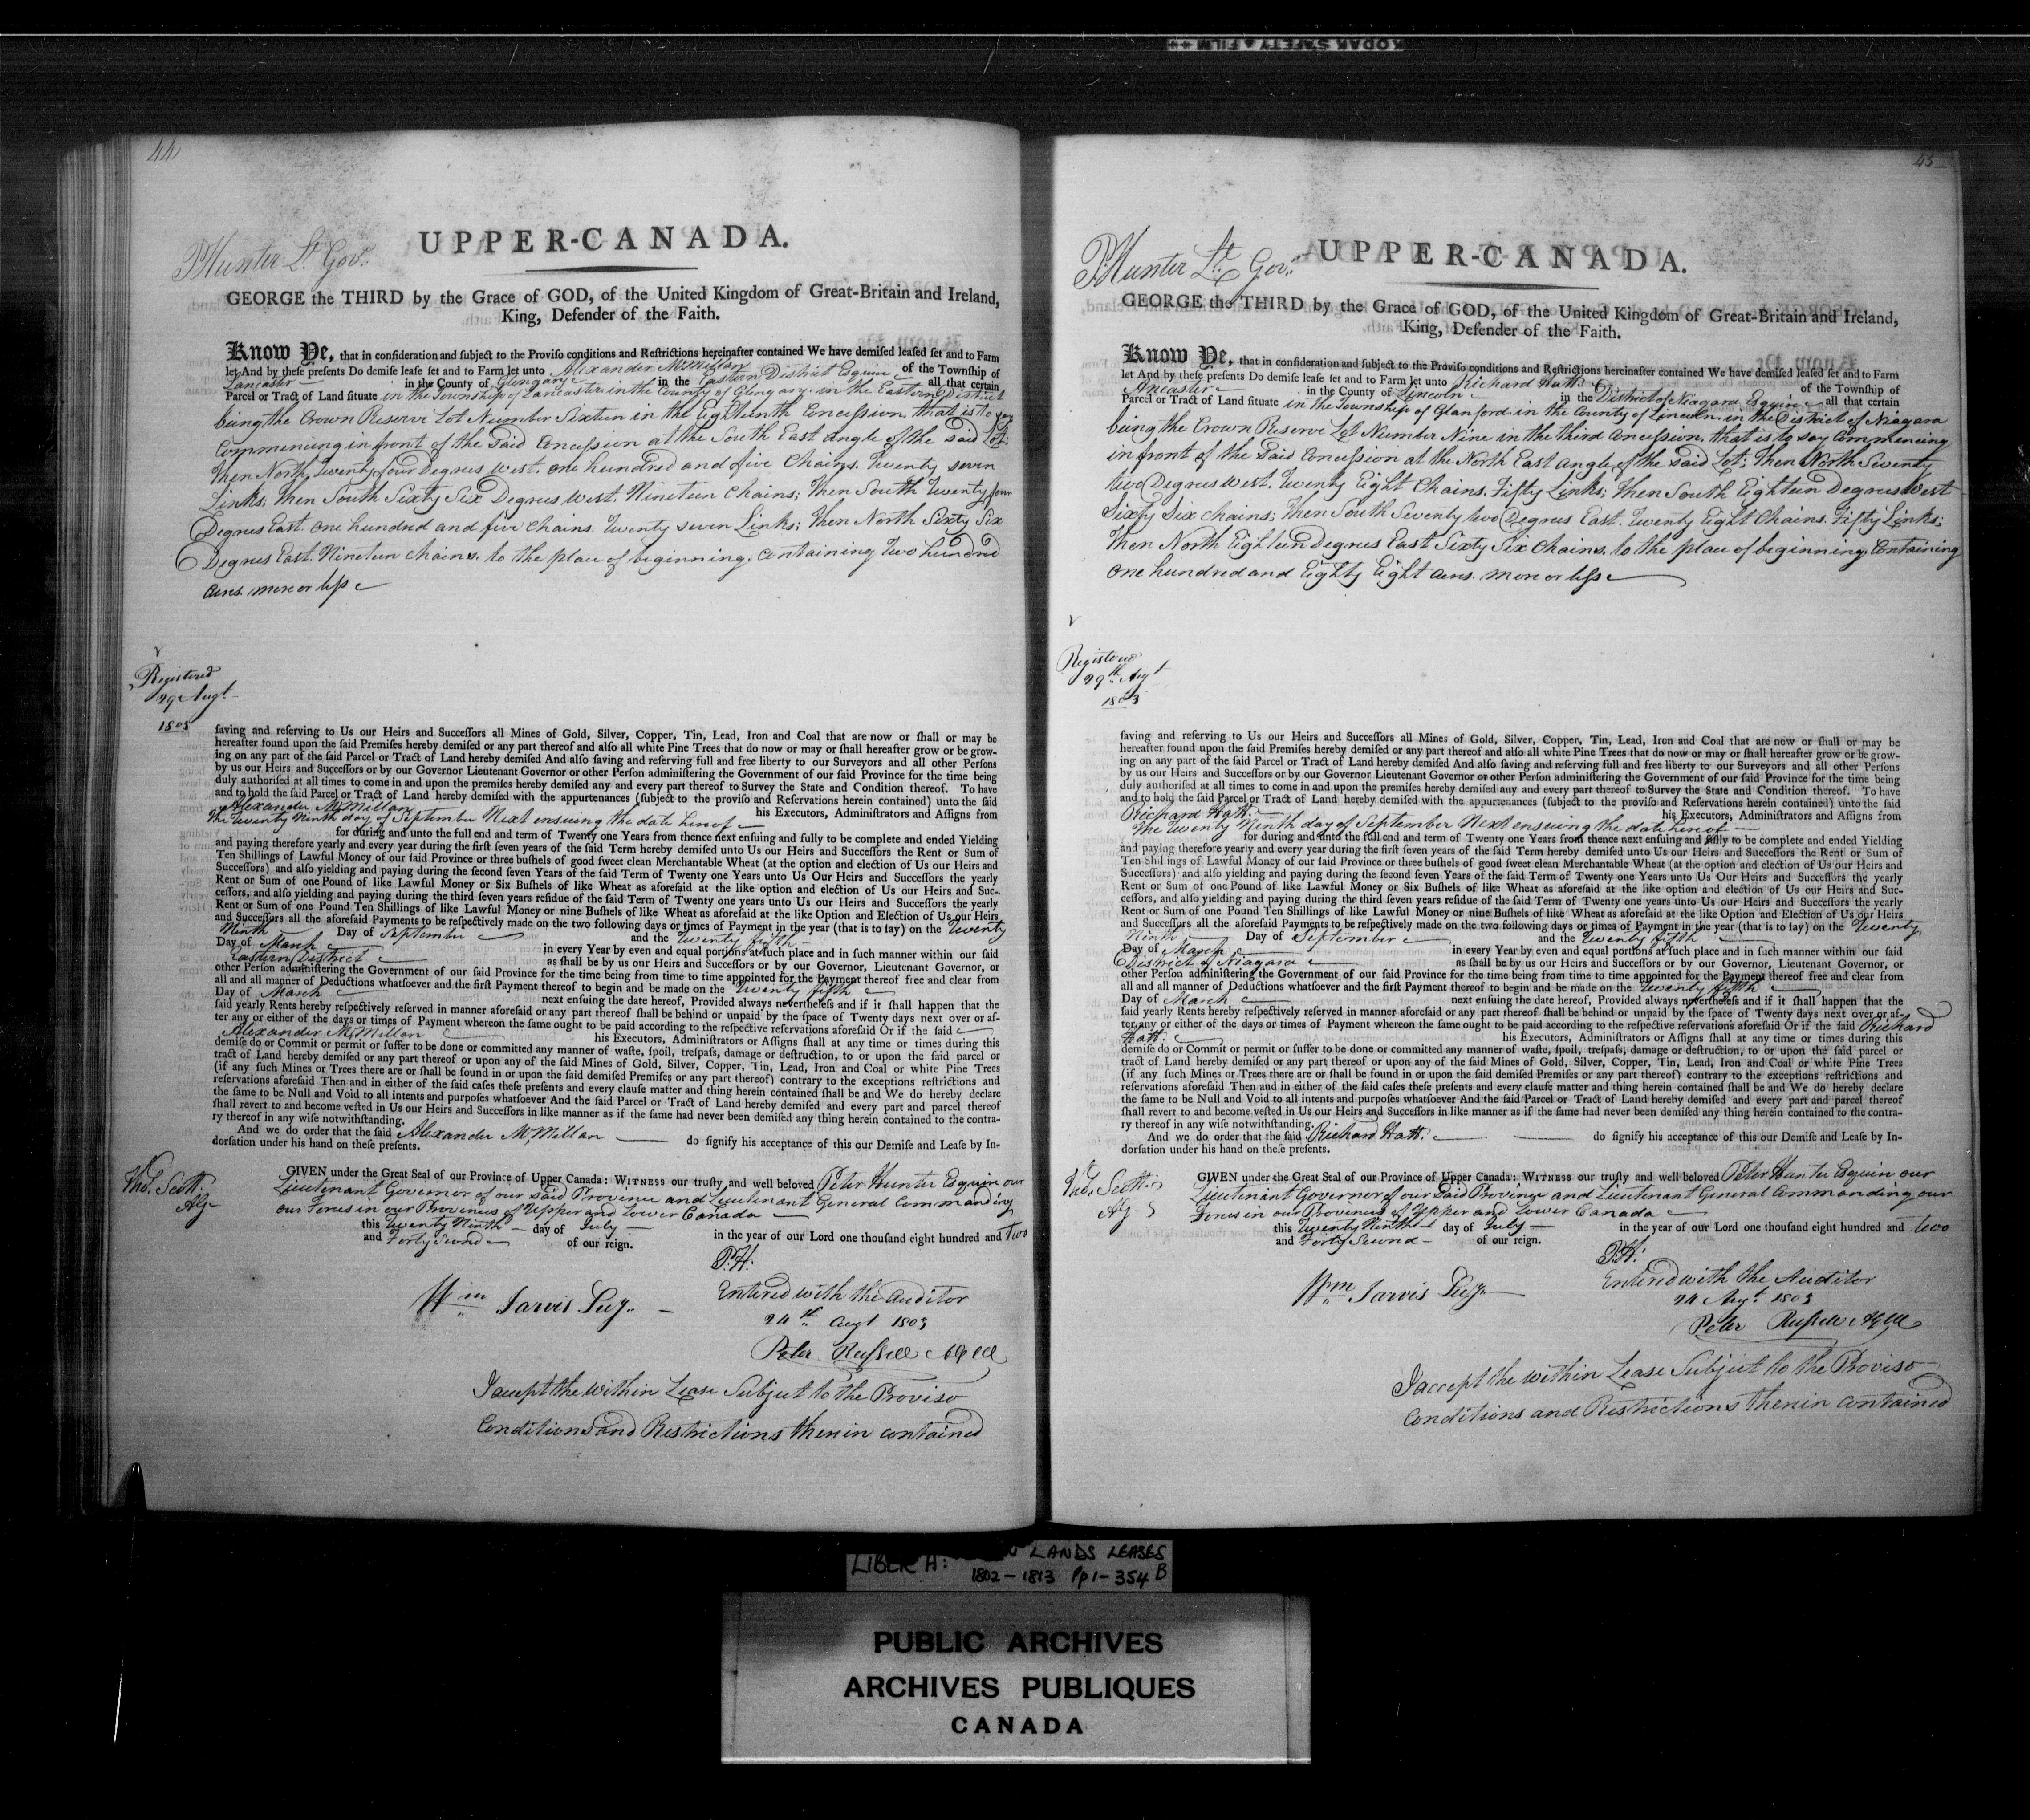 KODAK SAFETY FILM
44
UPPER-CANADA.
P Hunter Lt. Gov.
GEORGE the THIRD by the Grace of GOD, of the United Kingdom of Great-Britain and Ireland,
King, Defender of the Faith.
Know Ye, that in consideration and subject to the Proviso conditions and Restrictions hereinafter contained We have demised leased set and to Farm
let And by these presents Do demise lease set and to Farm let unto Alexander McMillan of the Township of
Lancaster in the County of Glengary in the Eastern District Esquire all that certain
Parcel or Tract of Land situate in the Township of Lancaster in the County of Glengary in the Eastern District
being the Crown Reserve Lot Number Sixteen in the Eighteenth Concession that is to say
Commencing in front of the said Concession at the South East angle of the said Lot;
Then North Twenty four Degrees West. one hundred and five Chains. Twenty seven
Links; Then South Sixty Six Degrees West. Nineteen Chains; Then South Twenty four
Degrees East. one hundred and five Chains. Twenty seven Links; Then North Sixty Six
Degrees East. Nineteen chains. to the place of beginning. Containing Two hundred
acres. more or less
Registered
29 Augt.
1803
saving and reserving to Us our Heirs and Successors all Mines of Gold, Silver, Copper, Tin, Lead, Iron and Coal that are now or shall or may be
hereafter found upon the said Premises hereby demised or any part thereof and also all white Pine Trees that do now or may or shall hereafter grow or be grow-
ing on any part of the said Parcel or Tract of Land hereby demised And also saving and reserving full and free liberty to our Surveyors and all other Persons
by us our Heirs and Successors or by our Governor Lieutenant Governor or other Person administering the Government of our said Province for the time being
duly authorised at all times to come in and upon the premises hereby demised any and every part thereof to Survey the State and Condition thereof. To have
and to hold the said Parcel or Tract of Land hereby demised with the appurtenances (subject to the proviso and Reservations herein contained) unto the said
Alexander McMillan his Executors, Administrators and Assigns from
the Twenty Ninth day of September Next ensuing the date hereof
for during and unto the full end and term of Twenty one Years from thence next ensuing and fully to be complete and ended Yielding
and paying therefore yearly and every year during the first seven years of the said Term hereby demised unto Us our Heirs and Successors the Rent or Sum of
Ten Shillings of Lawful Money of our said Province or three bushels of good sweet clean Merchantable Wheat (at the option and election of Us our Heirs and
Successors) and also yielding and paying during the second seven Years of the said Term of Twenty one Years unto Us Our Heirs and Successors the yearly
Rent or Sum of one Pound of like Lawful Money or Six Bushels of like Wheat as aforesaid at the like option and election of Us our Heirs and Suc-
cessors, and also yielding and paying during the third seven years residue of the said Term of Twenty one years unto Us our Heirs and Successors the yearly
Rent or Sum of one Pound Ten Shillings of like Lawful Money or nine Bushels of like Wheat as aforesaid at the like Option and Election of Us our Heirs
and Successors all the aforesaid Payments to be respectively made on the two following days or times of Payment in the year (that is to say) on the Twenty
Ninth Day of September and the Twenty fifth
Day of March in every Year by even and equal portions at such place and in such manner within our said
Eastern District as shall be by us our Heirs and Successors or by our Governor, Lieutenant Governor, or
other Person administering the Government of our said Province for the time being from time to time appointed for the Payment thereof free and clear from
all and all manner of Deductions whatsoever and the first Payment thereof to begin and be made on the Twenty fifth
Day of March next ensuing the date hereof, Provided always nevertheless and if it shall happen that the
said yearly Rents hereby respectively reserved in manner aforesaid or any part thereof shall be behind or unpaid by the space of Twenty days next over or af-
ter any or either of the days or times of Payment whereon the same ought to be paid according to the respective reservations aforesaid Or if the said
Alexander McMillan his Executors, Administrators or Assigns shall at any time or times during this
demise do or Commit or permit or suffer to be done or committed any manner of waste, spoil, trespass, damage or destruction, to or upon the said parcel or
tract of Land hereby demised or any part thereof or upon any of the said Mines of Gold, Silver, Copper, Tin, Lead, Iron and Coal or white Pine Trees
(if any such Mines or Trees there are or shall be found in or upon the said demised Premises or any part thereof) contrary to the exceptions restrictions and
reservations aforesaid Then and in either of the said cases these presents and every clause matter and thing herein contained shall be and We do hereby declare
the same to be Null and Void to all intents and purposes whatsoever And the said Parcel or Tract of Land hereby demised and every part and parcel thereof
shall revert to and become vested in Us our Heirs and Successors in like manner as if the same had never been demised any thing herein contained to the contra-
ry thereof in any wise notwithstanding.
And we do order that the said Alexander McMillan do signify his acceptance of this our Demise and Lease by In-
dorsation under his hand on these presents.
Tho. Scott.
A.G.
GIVEN under the Great Seal of our Province of Upper Canada: WITNESS our trusty and well beloved Peter Hunter Esquire our
Lieutenant Governor of our said Province and Lieutenant General Commanding
our Forces in our Provinces of Upper and Lower Canada
this Twenty Ninth day of July in the year of our Lord one thousand eight hundred and Two
and Forty Second of our reign.
P.H.
Wm Jarvis Secy.
Entered with the Auditor
24th Augt 1803
Peter Russell
I accept the within Lease Subject to the Proviso
Conditions and Restrictions therein contained
45
UPPER-CANADA.
P Hunter Lt. Gov.
GEORGE the THIRD by the Grace of GOD, of the United Kingdom of Great-Britain and Ireland,
King, Defender of the Faith.
Know Ye, that in consideration and subject to the Proviso conditions and Restrictions hereinafter contained We have demised leased set and to Farm
let And by these presents Do demise lease set and to Farm let unto Richard Hatt. of the Township of
Ancaster in the County of Lincoln in the District of Niagara Esquire all that certain
Parcel or Tract of Land situate in the Township of Glanford in the County of Lincoln. in the District of Niagara
being the Crown Reserve Lot Number Nine in the third Concession. that is to say Commencing
in front of the said Concession at the North East angle of the said Lot; Then North Seventy
two Degrees West. Twenty Eight Chains. Fifty Links; Then South Eighteen Degrees West
Sixty Six Chains; Then South Seventy two Degrees East. Twenty Eight Chains. Fifty Links;
Then North Eighteen Degrees East Sixty Six Chains. to the place of beginning Containing
one hundred and Eighty Eight acres. more or less
Registered
29th Augt
1803
saving and reserving to Us our Heirs and Successors all Mines of Gold, Silver, Copper, Tin, Lead, Iron and Coal that are now or shall or may be
hereafter found upon the said Premises hereby demised or any part thereof and also all white Pine Trees that do now or may or shall hereafter grow or be grow-
ing on any part of the said Parcel or Tract of Land hereby demised And also saving and reserving full and free liberty to our Surveyors and all other Persons
by us our Heirs and Successors or by our Governor Lieutenant Governor or other Person administering the Government of our said Province for the time being
duly authorised at all times to come in and upon the premises hereby demised any and every part thereof to Survey the State and Condition thereof. To have
and to hold the said Parcel or Tract of Land hereby demised with the appurtenances (subject to the proviso and Reservations herein contained) unto the said
Richard Hatt. his Executors, Administrators and Assigns from
the Twenty Ninth day of September Next ensuing the date hereof
for during and unto the full end and term of Twenty one Years from thence next ensuing and fully to be complete and ended Yielding
and paying therefore yearly and every year during the first seven years of the said Term hereby demised unto Us our Heirs and Successors the Rent or Sum of
Ten Shillings of Lawful Money of our said Province or three bushels of good sweet clean Merchantable Wheat (at the option and election of Us our Heirs and
Successors) and also yielding and paying during the second seven Years of the said Term of Twenty one Years unto Us Our Heirs and Successors the yearly
Rent or Sum of one Pound of like Lawful Money or Six Bushels of like Wheat as aforesaid at the like option and election of Us our Heirs and Suc-
cessors, and also yielding and paying during the third seven years residue of the said Term of Twenty one years unto Us our Heirs and Successors the yearly
Rent or Sum of one Pound Ten Shillings of like Lawful Money or nine Bushels of like Wheat as aforesaid at the like Option and Election of Us our Heirs
and Successors all the aforesaid Payments to be respectively made on the two following days or times of Payment in the year (that is to say) on the Twenty
Ninth Day of September and the Twenty fifth
Day of March in every Year by even and equal portions at such place and in such manner within our said
District of Niagara as shall be by us our Heirs and Successors or by our Governor, Lieutenant Governor, or
other Person administering the Government of our said Province for the time being from time to time appointed for the Payment thereof free and clear from
all and all manner of Deductions whatsoever and the first Payment thereof to begin and be made on the Twenty fifth
Day of March next ensuing the date hereof, Provided always nevertheless and if it shall happen that the
said yearly Rents hereby respectively reserved in manner aforesaid or any part thereof shall be behind or unpaid by the space of Twenty days next over or af-
ter any or either of the days or times of Payment whereon the same ought to be paid according to the respective reservations aforesaid Or if the said Richard
Hatt. his Executors, Administrators or Assigns shall at any time or times during this
demise do or Commit or permit or suffer to be done or committed any manner of waste, spoil, trespass, damage or destruction, to or upon the said parcel or
tract of Land hereby demised or any part thereof or upon any of the said Mines of Gold, Silver, Copper, Tin, Lead, Iron and Coal or white Pine Trees
(if any such Mines or Trees there are or shall be found in or upon the said demised Premises or any part thereof) contrary to the exceptions restrictions and
reservations aforesaid Then and in either of the said cases these presents and every clause matter and thing herein contained shall be and We do hereby declare
the same to be Null and Void to all intents and purposes whatsoever And the said Parcel or Tract of Land hereby demised and every part and parcel thereof
shall revert to and become vested in Us our Heirs and Successors in like manner as if the same had never been demised any thing herein contained to the contra-
ry thereof in any wise notwithstanding.
And we do order that the said Richard Hatt. do signify his acceptance of this our Demise and Lease by In-
dorsation under his hand on these presents.
Tho. Scott
A.G.
GIVEN under the Great Seal of our Province of Upper Canada: WITNESS our trusty and well beloved Peter Hunter Esquire our
Lieutenant Governor of our said Province and Lieutenant General Commanding our
Forces in our Provinces of Upper and Lower Canada
this Twenty Ninth day of July in the year of our Lord one thousand eight hundred and two
and Forty Second of our reign.
P.H.
Wm Jarvis Secy
Entered with the Auditor
24 Augt. 1803
Peter Russell
I accept the within Lease Subject to the Proviso
Conditions and Restrictions therein contained
LIBER A: LANDS LEASES
1802-1813 Pp 1-354 B
PUBLIC ARCHIVES
ARCHIVES PUBLIQUES
CANADA